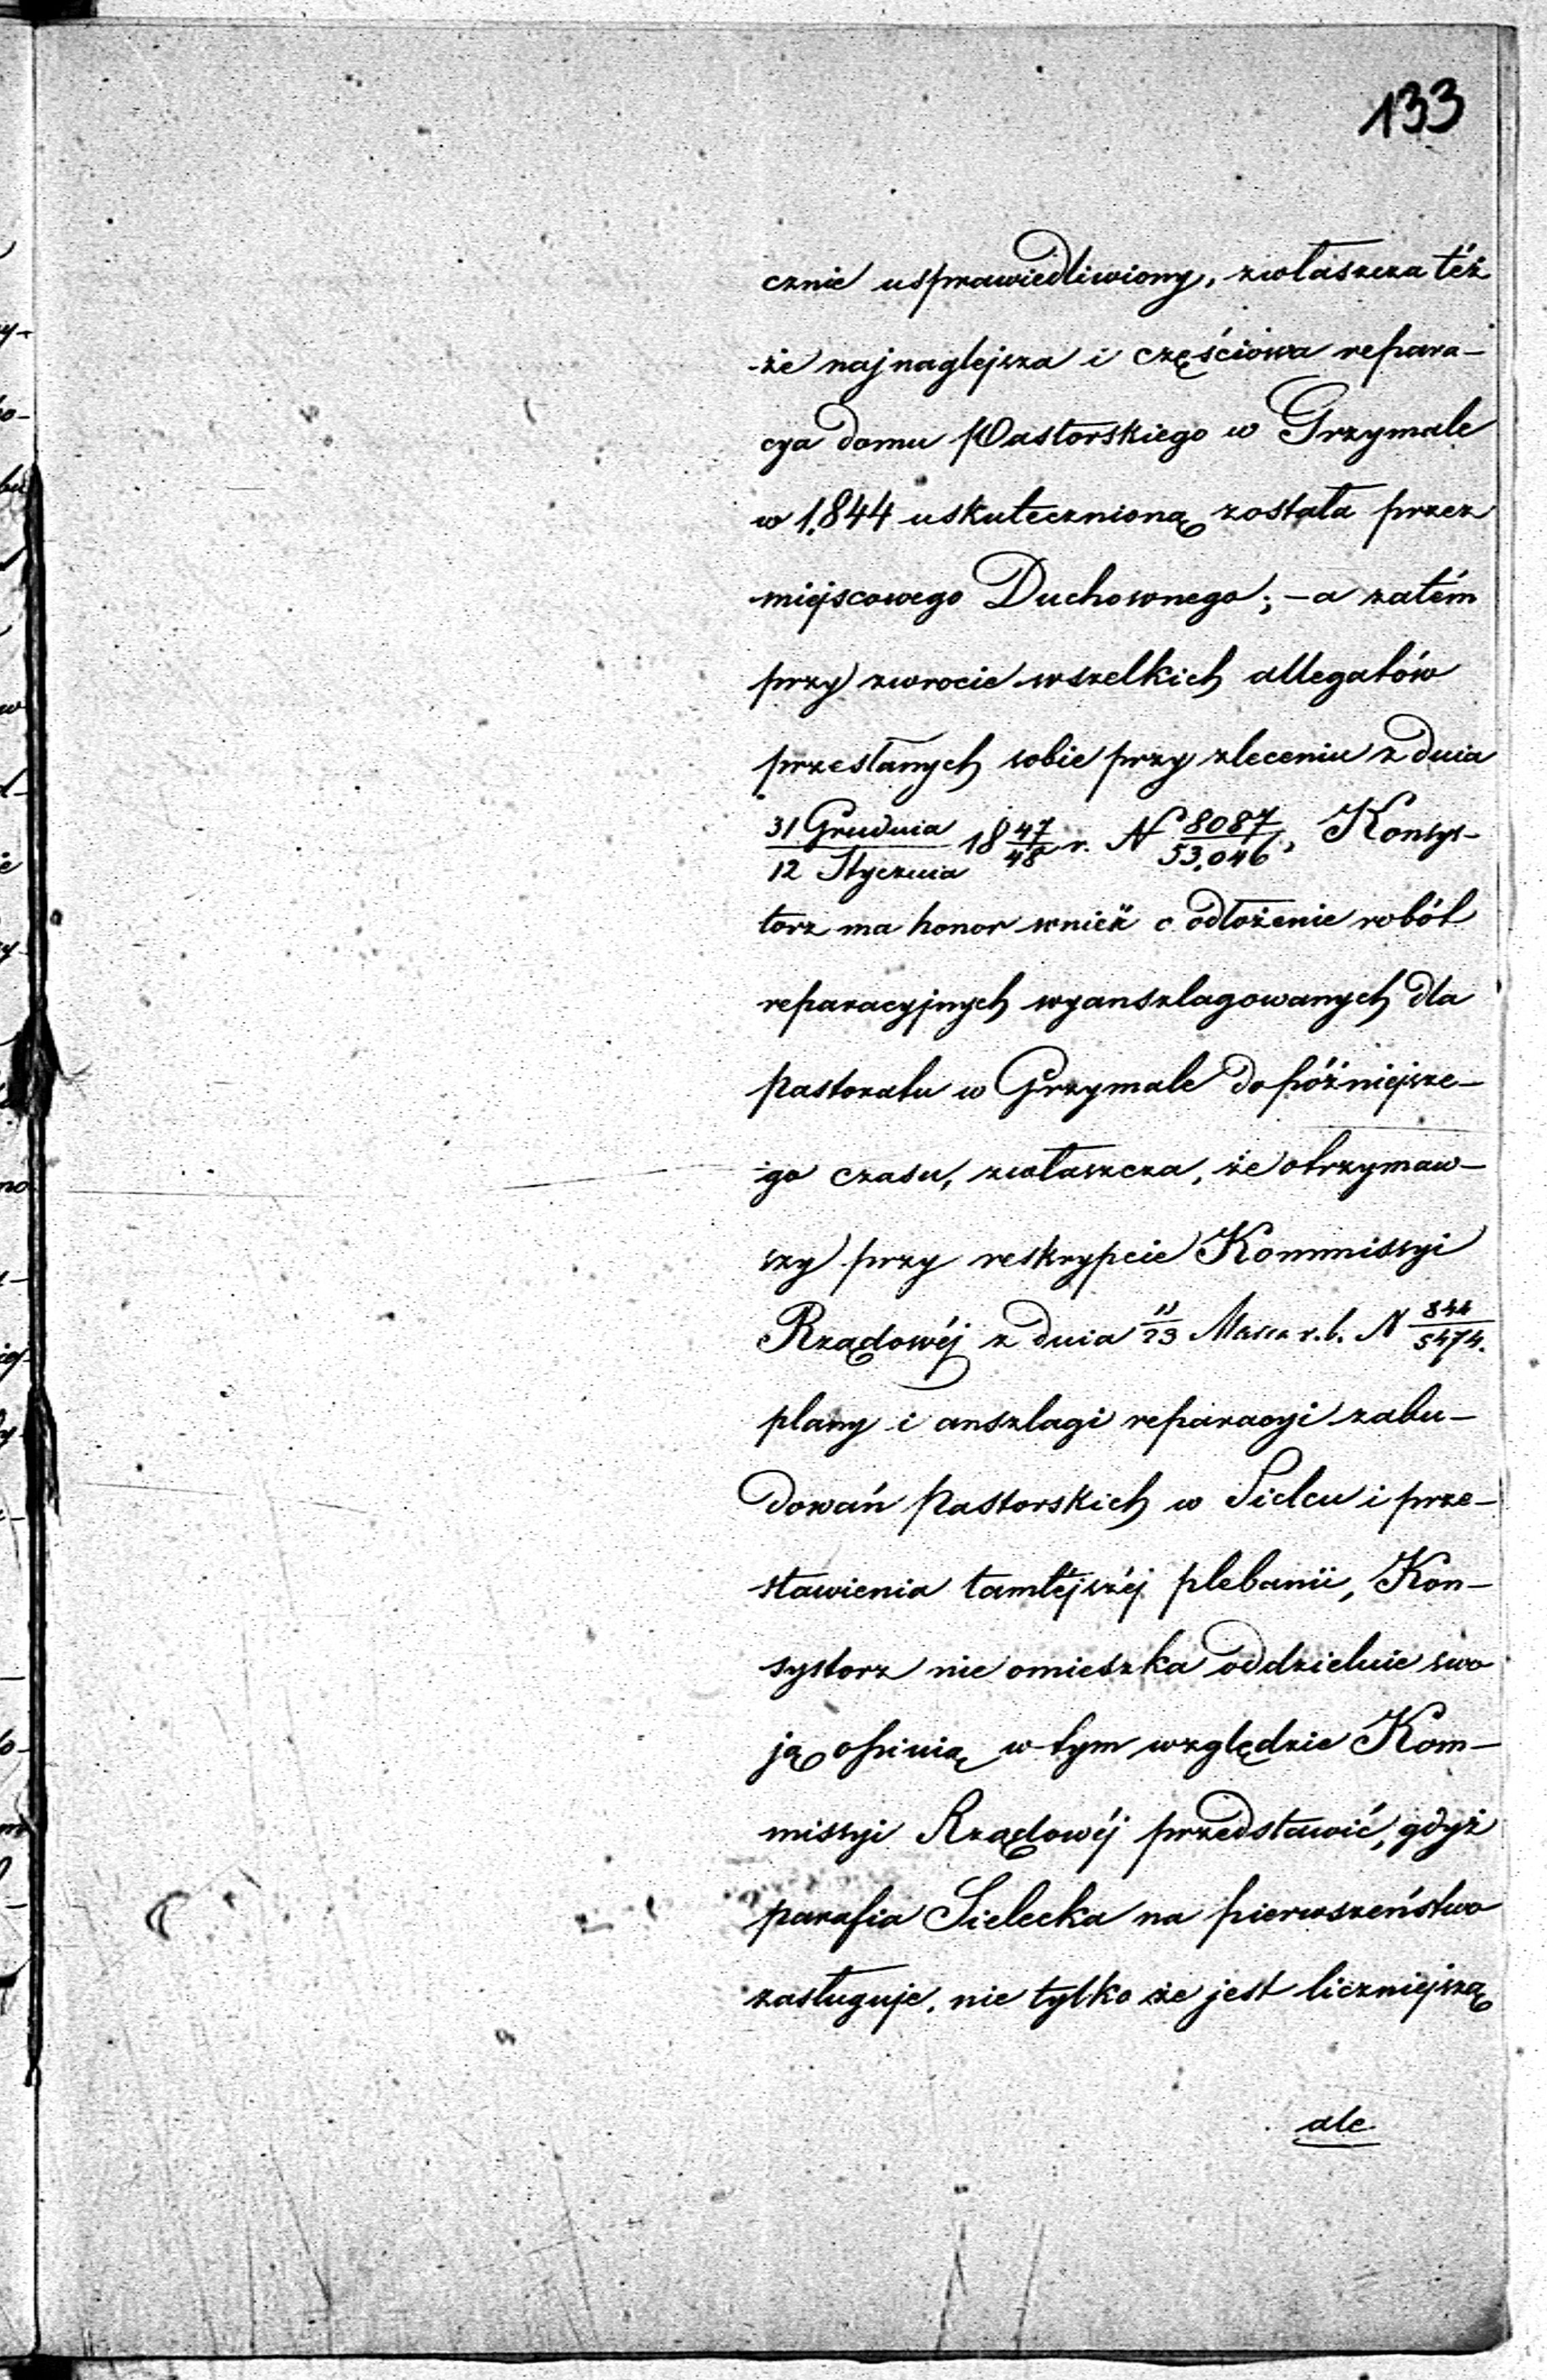 133
cznie usprawiedliwiony, zwłaszcza téż
że najnaglejsza i częściowa repara-
cya domu Pastorskiego w Grzymale
w 1,844 uskutecznioną została przez
miejscowego Duchownego; - a zatém
przy zwrocie wszelkich allegatów
przesłanych sobie przy zleceniu z dnia
31 Grudnia/12 Stycznia 18 47/48 r. N 8087/53,046, Konsys-
torz ma honor wnieść o odłożenie robót
reparacyjnych wyanszlagowanych dla
Pastoratu w Grzymale do późniejsze-
go czasu, zwłaszcza, że otrzymaw-
szy przy reskrypcie Kommissyi
Rządowéj z dnia 11/23 Marca r.b. N 844/5474.
plany i anszlagi reparacyi zabu-
dowań Pastorskich w Sielcu i prze-
stawienia tamtéjszéj plebanii, Kon-
systorz nie omieszka oddzielnie swo
ją opinią w tym względzie Kom-
missyi Rządowéj przedstawić, gdyż
parafia Sielecka na pierwszeństwo
zasługuje, nie tylko że jest liczniejszą
ale